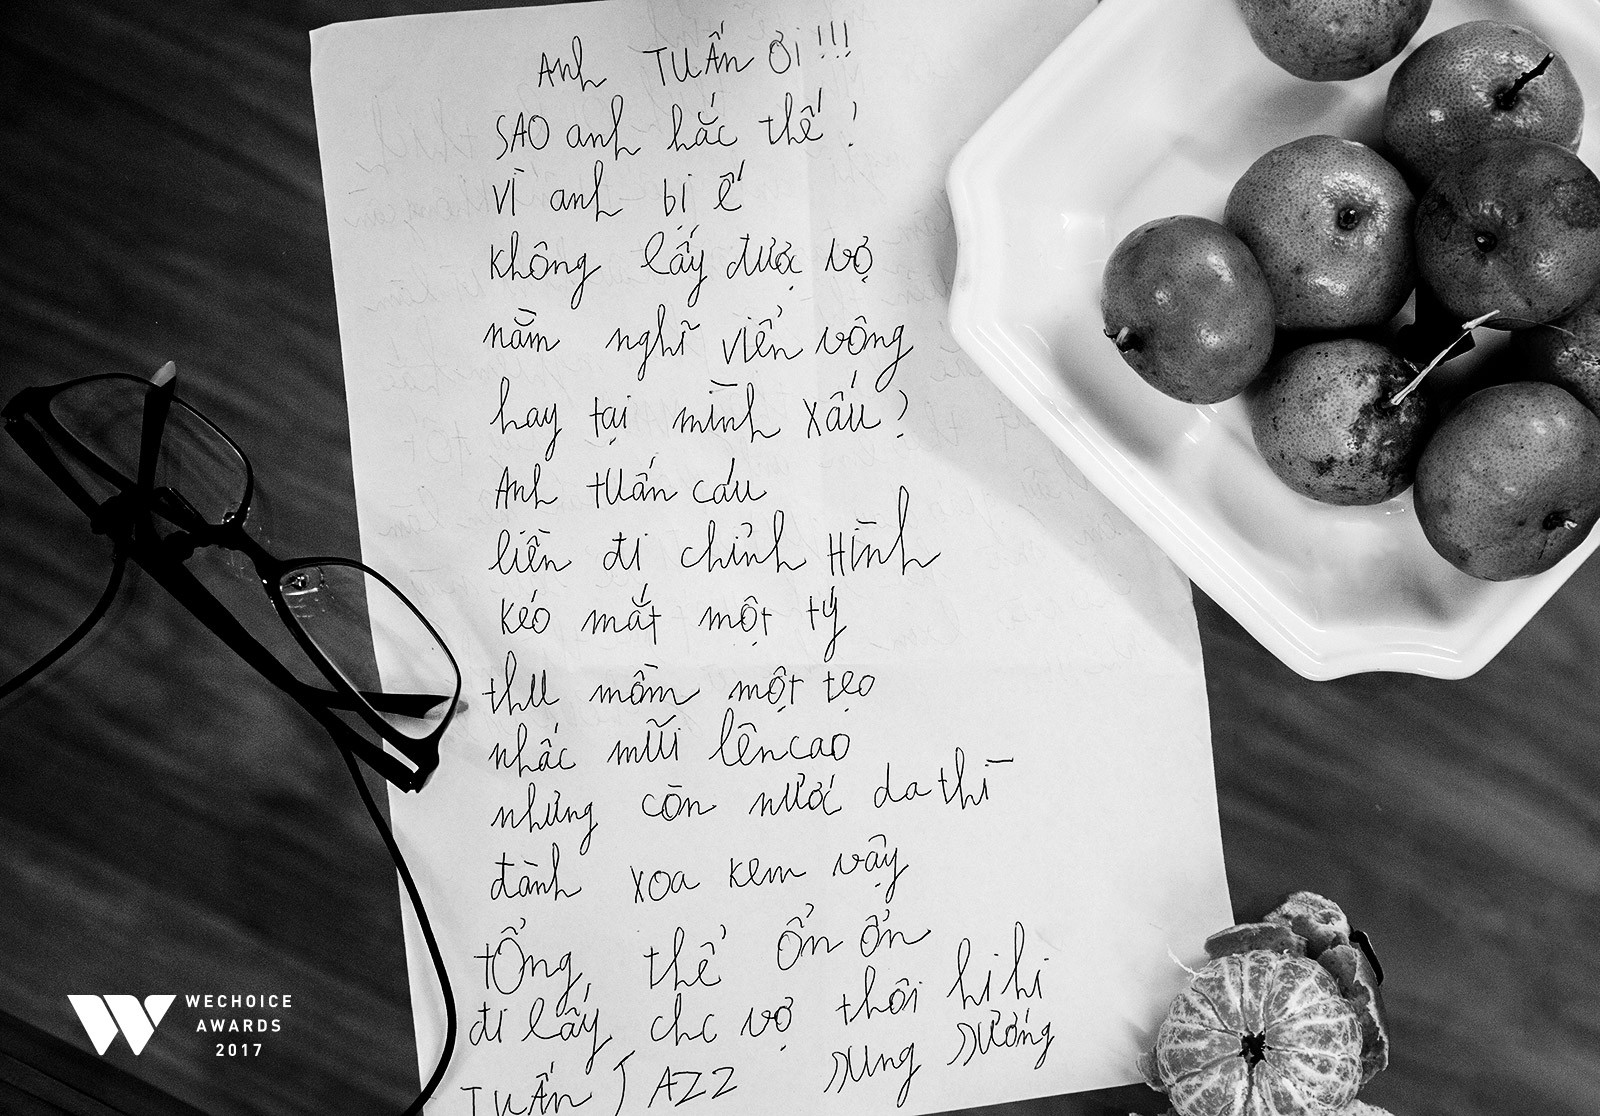 Anh TUẤN ƠI!!!
SAO anh hắc thế?
Vì anh bị ế
Không lấy được vợ
nằm nghĩ viển vông
hay tại mình xấu?
Anh tuấn cáu
liền đi chỉnh Hình
Kéo mắt một tý
thu mồm một tẹo
nhấc mũi lên cao
nhưng còn nước da thì
đành xoa kem vậy
tổng thể ổn ổn
đi lấy vợ thôi hi hi
TUẤN JAZZ sung sướng
WECHOICE
AWARDS
2017